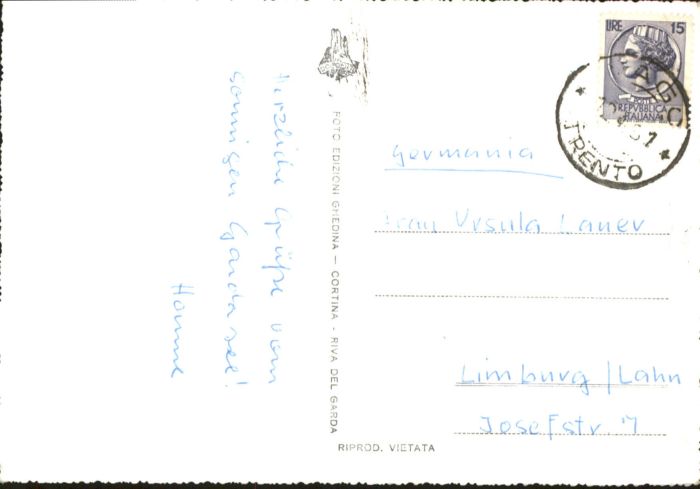 Herzliche Grüße vom
sonnigen Gardasee!
Hanne
FOTO EDIZIONI GHEDINA — CORTINA - RIVA DEL GARDA
RIPROD. VIETATA
LIRE 15
POSTE
REPVBBLICA
ITALIANA
TRENTO
Germania
Frau Ursula
Limburg/Lahn
Josefstr. 7